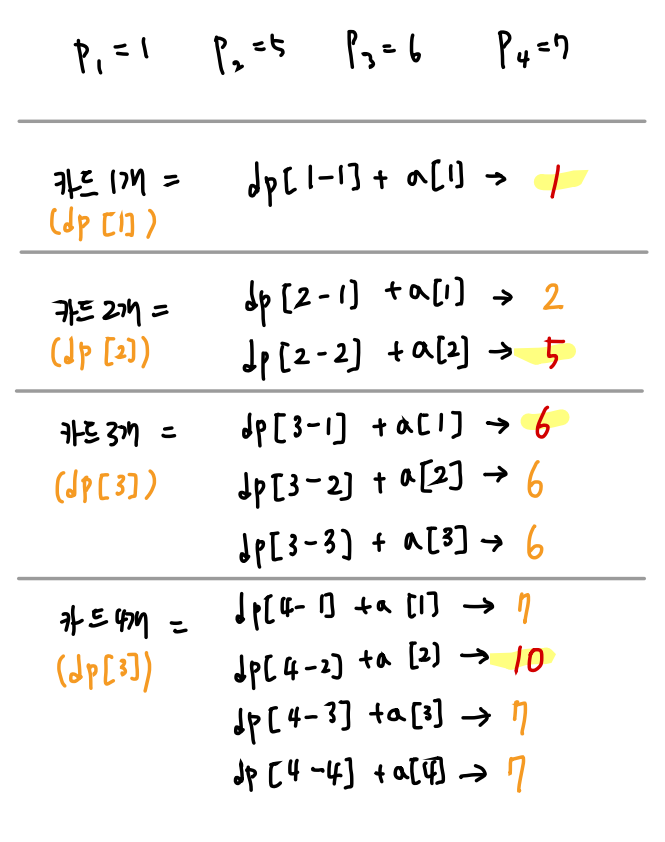 P₁=1 P₂=5 P₃=6 P₄=7
카드 1개 = dp[1-1] + a[1] → 1
(dp[1])
카드 2개 = dp[2-1] + a[1] → 2
(dp[2]) dp[2-2] + a[2] → 5
카드 3개 = dp[3-1] + a[1] → 6
(dp[3]) dp[3-2] + a[2] → 6
dp[3-3] + a[3] → 6
카드 4개 = dp[4-1] + a[1] → 7
(dp[3]) dp[4-2] + a[2] → 10
dp[4-3] + a[3] → 7
dp[4-4] + a[4] → 7